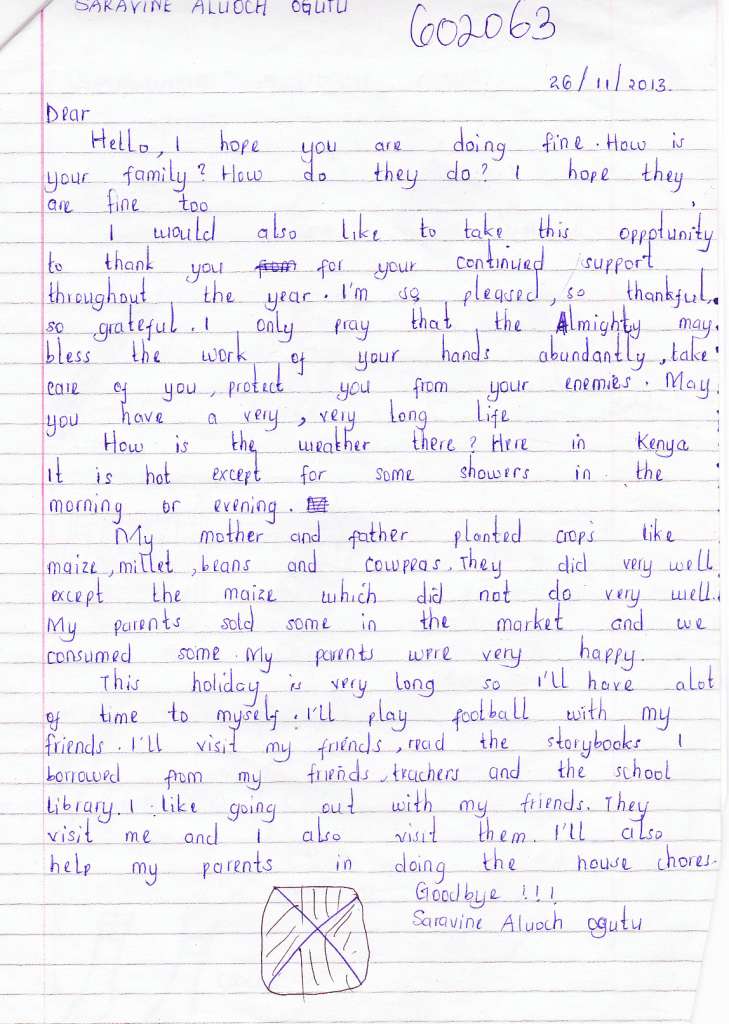 SARAVINE ALUOCH OGUTU
602063
26/11/2013.
Dear
Hello, I hope you are doing fine. How is
your family? How do they do? I hope they
are fine too
I would also like to take this opportunity
to thank you from for your continued support
throughout the year. I'm so pleased, so thankful,
so grateful. I only pray that the Almighty may
bless the work of your hands abundantly, take
care of you, protect you from your enemies. May
you have a very, very long life
How is the weather there? Here in Kenya
It is hot except for some showers in the
morning or evening.
My mother and father planted crops like
maize, millet, beans and cowpeas. They did very well
except the maize which did not do very well.
My parents sold some in the market and we
consumed some. My parents were very happy.
This holiday is very long so I'll have alot
of time to myself. I'll play football with my
friends. I'll visit my friends, read the storybooks I
borrowed from my friends, teachers and the school
library. I like going out with my friends. They
visit me and I also visit them. I'll also
help my parents in doing the house chores.
Goodbye !!!
Saravine Aluoch Ogutu